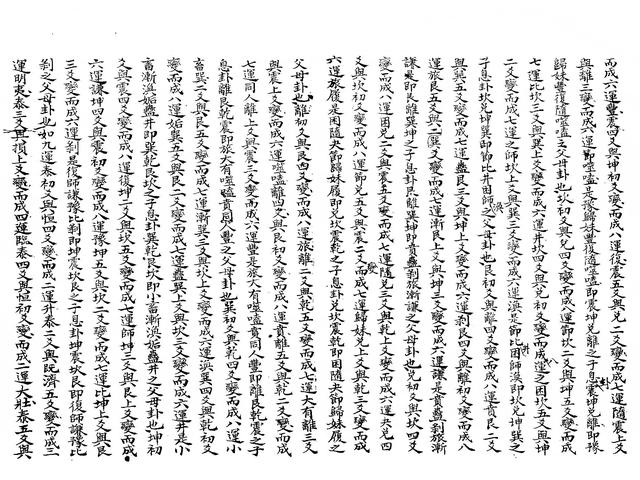 而成六運豐四爻與坤初爻變而成八運復震五爻與兌二爻變而成八運隨上爻
與離三爻變而成六運噬嗑歸妹豐復隨噬嗑即震坤兌離之子息震坤兌離即豫
歸妹豐復隨噬嗑之父母卦也坎初爻與兌四爻變而成八運節坎二爻與坤五爻變而成
七運比坎三爻與巽上爻變而成六運井坎四爻與兌初爻變而成八運之困坎五爻與坤
二爻變而成七運之師坎上爻與巽三爻變而成六運渙是節比井困師渙即坎兌坤巽之
子息卦坎兌坤巽即節比井困師之渙父母卦也艮初爻與離四爻變而成八運賁艮二爻
與巽五爻變而成七運蠱艮三爻與坤上爻變而成六運剝艮四爻與離初爻變而成八
運旅艮五爻與巽二爻變而成七運漸艮上爻與坤三爻變而成六運謙是賁蠱剝旅漸
謙即艮離巽坤之子息卦艮離巽坤即賁蠱剝旅漸謙之父母卦也兌初爻與坎四爻
變而成八運困兌二爻與震五爻變而成七運隨兌三爻與乾上爻變而成六運夬兌四
爻與坎初爻變而成八運節兌五爻與震二爻變而成七運歸妹兌上爻與乾三爻變而成
六運履是困隨夬節歸妹履即兌坎震乾之子息卦兌坎震乾即困隨夬節歸妹履之
父母卦也離初爻與艮四爻變而成八運旅離二爻與乾五爻變而成七運大有離三爻
與震上爻變而成六運噬嗑離四爻與艮初爻變而成八運賁離五爻與乾二爻變而成
七運同人離上爻與震三爻變而成六運豐是旅大有噬嗑賁同人豐即離艮乾震之子
息卦離艮乾震即旅大有噬嗑賁同人豐之父母卦也巽初爻與乾四爻變而成八運小
畜巽二爻與艮五爻變而成七運漸巽三爻與坎上爻變而成六運渙巽四爻與乾初爻
變而成八運姤巽五爻與艮二爻變而成七運蠱巽上爻與坎三爻變而成六運井是小
畜漸渙姤蠱井即巽乾艮坎之子息卦巽乾艮坎即小畜漸渙姤蠱井之父母卦也坤初
爻與震四爻變而成八運復坤二爻與坎五爻變而成七運師坤三爻與艮上爻變而成
六運謙坤四爻與震初爻變而成八運豫坤五爻與坎二爻變而成七運比坤上爻與艮
三爻變而成六運剝是復師謙豫比剝即坤震坎艮之子息卦坤震坎艮即復師謙豫比
剝之父母卦也如九運泰初爻與恒四爻變而成二運升泰二爻與既濟五爻變而成三
運明夷泰三爻與損上爻變而成四運臨泰四爻與恒初爻變而成二運大壯泰五爻與